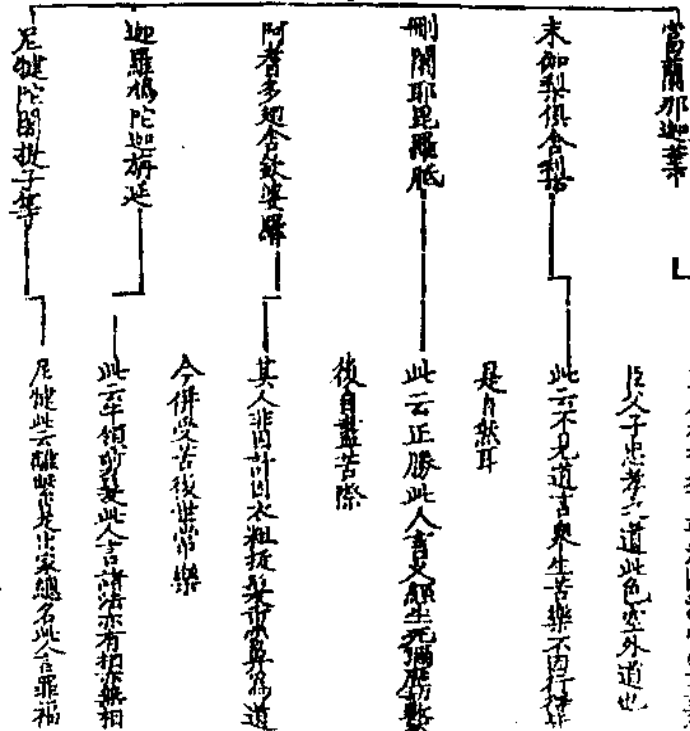 富蘭那迦葉
臣父子忠孝之道此色空外道也
末伽梨俱舍梨
此云不見道言眾生苦樂不因行得
是自然耳
刪闍耶毘羅胝
此云正勝此人言久經生死彌歷劫數
後自盡苦際
阿耆多翅舍欽婆羅
其人非因計因衣粗 髮 鼻為道
今併受苦後世常樂
迦羅鳩陀迦旃延
此云牛領剪髮此人言諸法亦有相亦無相
尼犍陀闍提子等
尼犍此云離繫是出家總名此人言罪福